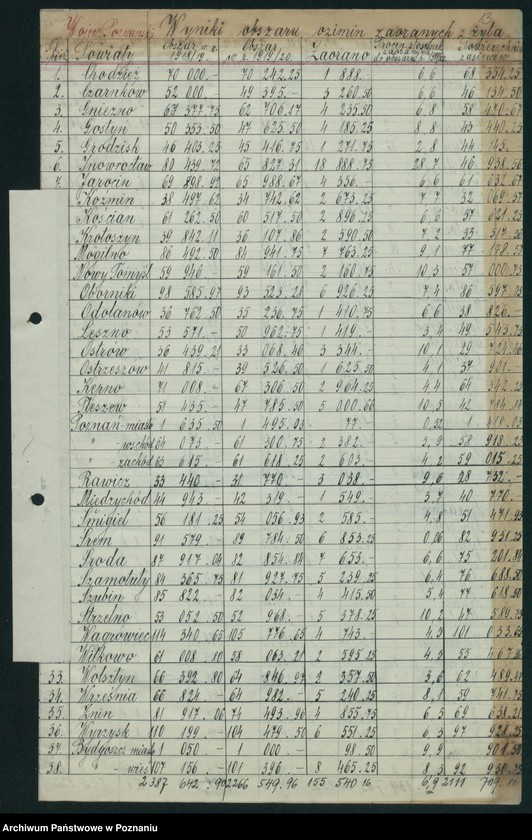 Wojew. Poznańskie Wyniki obszaru ozimin zaoranych z żyta.
Powiaty Obszar 1918/19 Obszar 1919/20 Zaorano
1. Chodzież 70 000.- 70 242.25 1 888.- 6,6 68 354.25
2. Czarnków 52 000.- 49 395.- 3 260.50 6,6 46 134.50
3. Gniezno 67 377.75 62 706.17 4 235.50 6,8 58 470.67
4. Gostyń 50 353.50 47 625.50 4 185.25 8,8 43 440.25
5. Grodzisk 46 403.25 45 416.75 1 271.75 2,8 44 145.
6. Inowrocław 80 439.72 65 827.31 18 888.75 28,7 46 938.56
7. Jarocin 69 898.92 65 988.67 4 356.- 6,6 61 632.67
Koźmin 38 497.62 34 742.62 2 673.25 7,7 32 069.37
Kościan 61 262.50 60 517.50 2 896.25 6,6 57 621.25
Krotoszyn 39 842.11 36 107.86 2 590.50 7,2 33 517.36
Mogilno 86 492.50 84 941.75 7 763.25 9,1 77 178.50
Nowy Tomyśl 59 946.- 59 161.50 2 160.75 10,3 57 000.75
Oborniki 98 585.97 93 523.28 6 926.25 7,4 86 597.03
Odolanów 36 762.50 35 236.75 1 410.75 6,6 38 826.
Leszno 53 571.- 50 962.75 1 419.- 3,4 49 543.75
Ostrów 36 439.21 33 068.46 3 344.- 10,1 29 724.46
Ostrzeszów 41 815.- 39 526.50 1 625.50 4,1 37 901.
Kępno 71 008.- 67 306.50 2 964.25 4,4 64 342.25
Pleszew 51 435.- 47 785.50 5 000.66 10,5 42 784.84
Poznań miasto 1 635.50 1 495.03 77.- 0,52 1 418.03
" wschód 64 073.- 61 300.75 2 382.- 3,9 58 918.25
" zachód 65 615.- 61 618.25 2 603.- 4,2 59 015.25
Rawicz 33 440.- 31 770.- 3 038.- 9,6 28 732.-
Międzychód 44 943.- 42 319.- 1 549.- 3,7 40 770.
Śmigiel 56 181.25 54 056.93 2 585.- 4,8 51 471.93
Śrem 91 579.- 89 784.50 6 853.25 0,06 82 931.25
Środa 87 917.04 82 854.84 7 653.- 6,6 75 201.84
Szamotuły 84 365.75 81 927.75 5 239.25 6,4 76 688.50
Szubin 85 822.- 82 034.- 4 415.50 5,4 77 618.50
Strzelno 53 052.50 52 968.- 5 378.25 10,2 47 589.75
Wągrowiec 114 340.65 105 776.65 4 743.- 4,3 101 033.65
Witkowo 61 008.80 58 063.21 2 595.25 4,3 55 467.96
33. Wolsztyn 66 392.80 64 846.97 2 357.50 3,6 62 489.47
34. Września 66 824.- 64 982.- 5 240.25 8,1 59 741.75
35. Żnin 81 917.06 74 493.96 4 855.75 6,5 69 638.21
36. Wyrzysk 110 199.- 104 479.50 6 551.25 6,3 97 928.25
37. Bydgoszcz miasto 1 050.- 1 000.- 98.50 9,9 901.50
38. " wieś 107 156.- 101 396.- 8 465.25 8,3 92 930.75
2 387 642.90 2266 549.96 155 540.16 6,9 2111
Archiwum Państwowe w Poznaniu